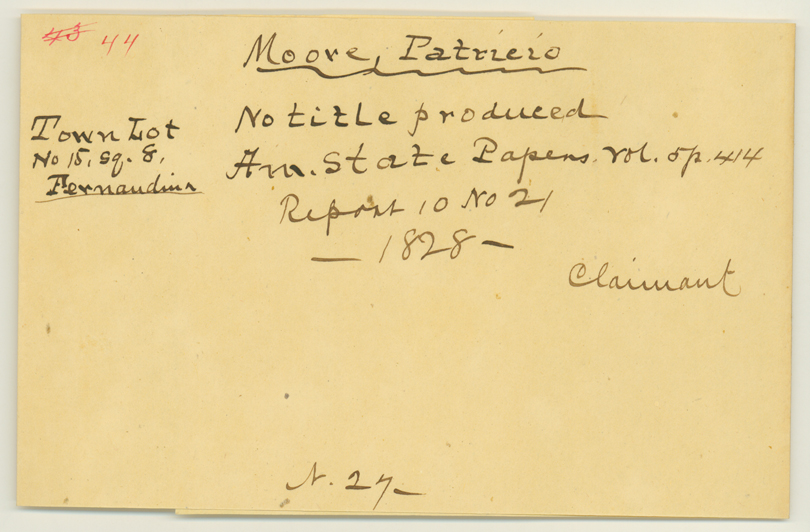 43 44
Moore, Patricio
Town Lot
No 15, Sq. 8,
Fernandina
No title produced
Am. State Papers. Vol. 5 p. 414
Report 10 No 21
— 1828 —
Claimant
N. 27